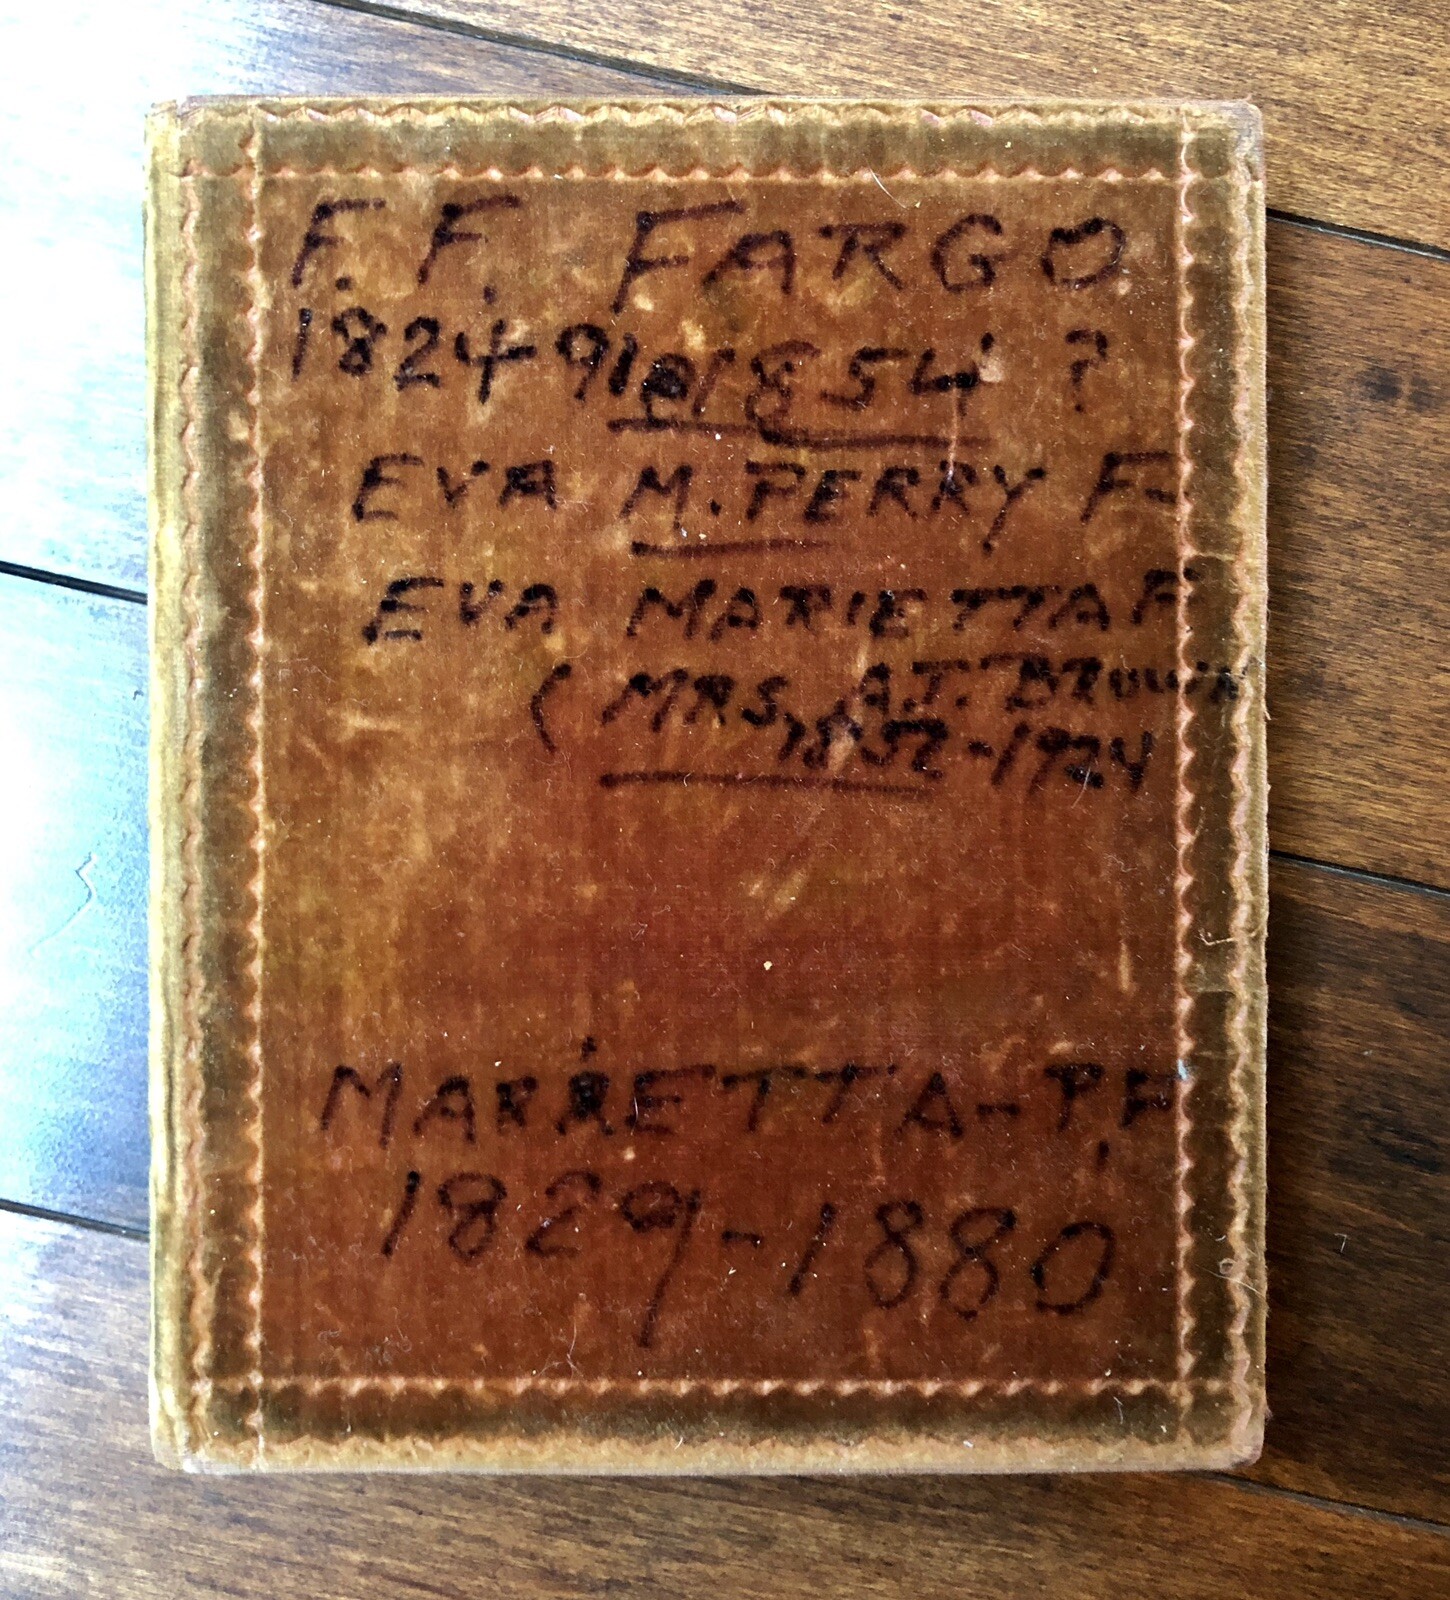 F. F. FARGO
1824-91 @1854 ?
EVA M. PERRY F-
EVA MARIETTA F
( MRS. A.J. BROWN
1852-1924
MARIETTA-P.F
1829-1880